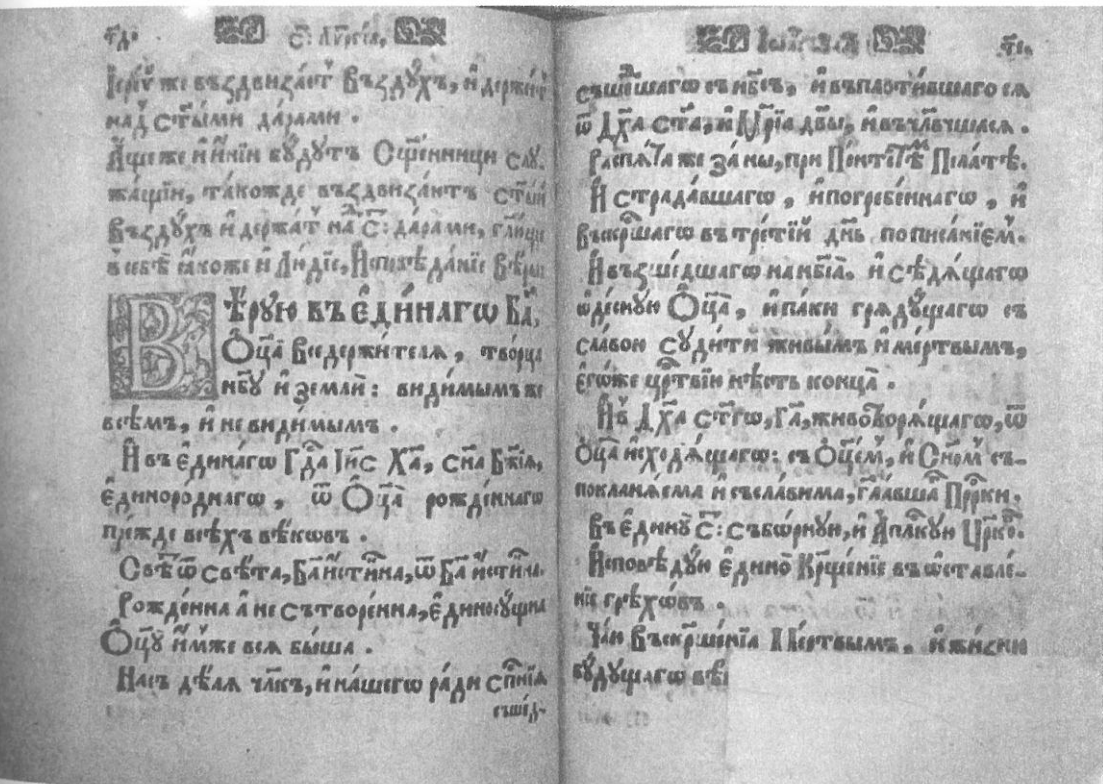 тд҃.
С҃: Лѵргїа,
Іерей же въздвизает Въздꙋхъ, и держит
над ст҃ыми дарами.
Аще же и инїи бꙋдꙋтъ Ос҃щенници слꙋ-
жащїи, такожде въздвизают ст҃ый
Въздꙋхъ и держат на С҃: дарами, гл҃юще
в себѣ ꙗкоже и Людїе, Исповѣданїе Вѣры
ВѢрꙋю въ единагѡ Бг҃а,
Ѻц҃а Вседержителѧ, творца
нб҃ꙋ и земли: видимымъ же
всѣмъ, и не видимым.
И въ единагѡ Гд҃а Іи҃с Хр҃а, сн҃а Бж҃їѧ,
единороднагѡ, ѿ Ѻц҃а рожденнагѡ
прежде всѣхъ вѣкѡвъ.
Свѣт ѿ свѣта, Бг҃а истинна, ѿ Бг҃а истинна.
Рожденна а не сътворенна, единосꙋщна
Ѻц҃ꙋ имже всѧ быша.
Нас дѣлѧ чл҃къ, и нашегѡ ради сп҃нїѧ
съшед-
Іѡанна
тє҃.
съшедшагѡ съ нб҃съ, и въплотившаго сѧ
ѿ Дх҃а ст҃а, и Мр҃їа дв҃ы, и въчл҃вчшасѧ.
Распѧта же за ны, при Понтестѣм Пілатѣ.
И страдавшагѡ, и погребеннагѡ, и
въскр҃шагѡ въ третїй дн҃ь по писанїем.
И възшедшагѡ на нб҃са. и сѣдѧщагѡ
ѡдеснꙋю Ѻц҃а, и паки грѧдꙋщагѡ съ
славою сꙋдити живымъ и мертвымъ,
егѡже цр҃твїю нѣсть конца.
И в Дх҃а ст҃гѡ, Гд҃а, животворѧщагѡ, ѿ
Ѻц҃а исходѧщагѡ: съ Ѻц҃ем, и Сн҃ом съ-
покланѧема и съславима, гл҃авшаго Пр҃рки.
Въ единꙋ С҃: Съборнꙋю, и Ап҃лкꙋю Цр҃ков.
Исповѣдꙋю едино Кр҃щенїе въ ѡставле-
нїе грѣхѡвъ.
Чаю Въскр҃шенїѧ Мертвымъ. и жизни
бꙋдꙋщагѡ вѣ